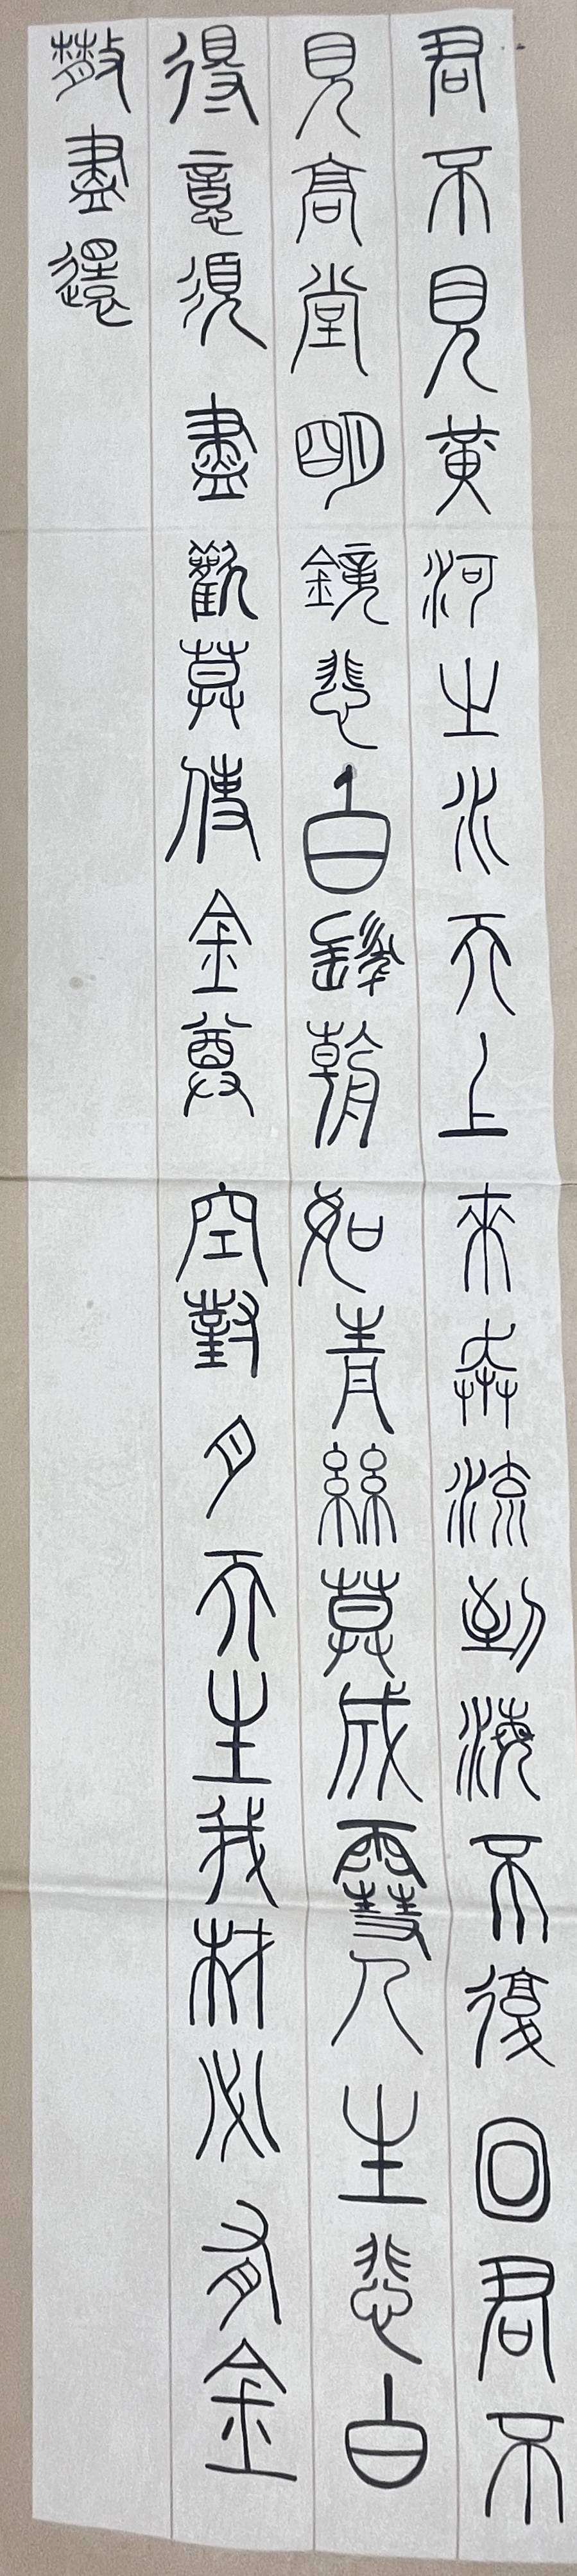 君不見黃河之水天上來奔流到海不復回君不
見高堂明鏡悲白髮朝如青絲莫成雪人生悲白
得意須盡歡莫使金尊空對月天生我材必有金
散盡還